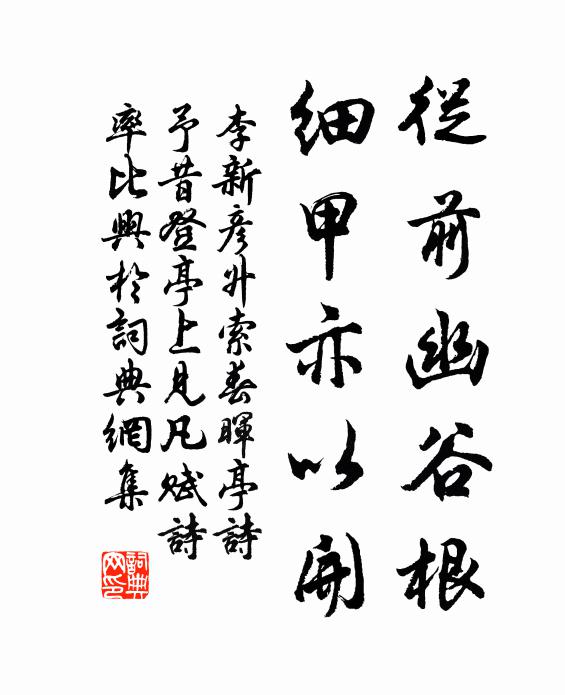 從前幽谷根
細甲亦以開
李新彥升索春暉亭詩
予昔登亭上見凡賦詩
率比興於詞典網集
詞典網印